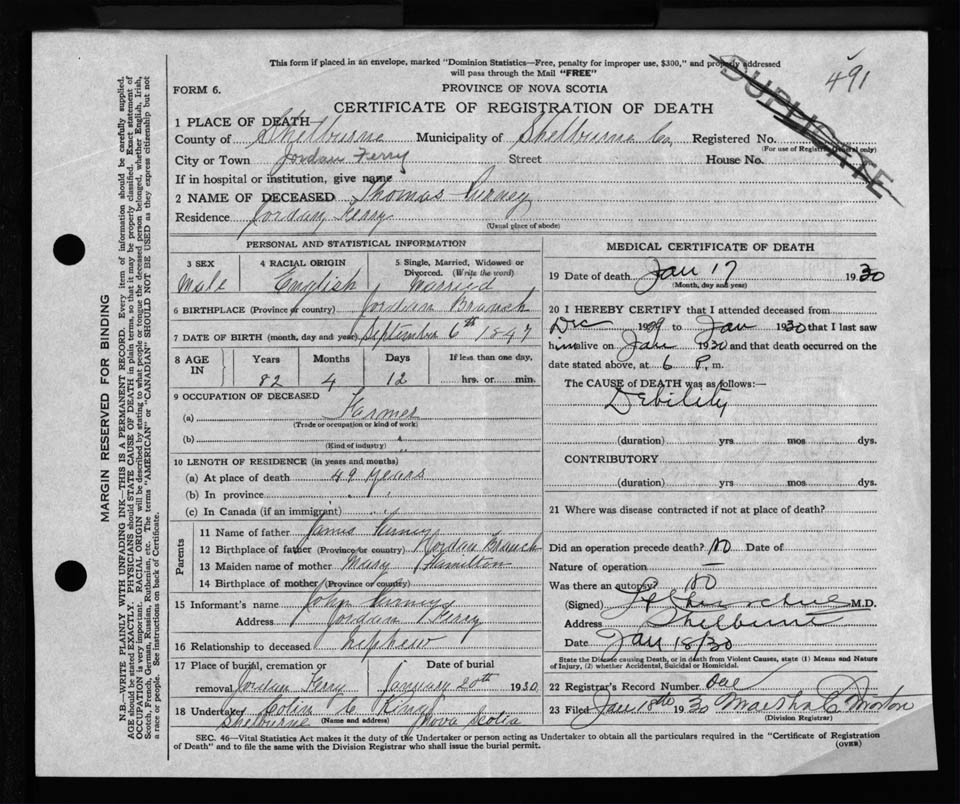 This form if placed in an envelope, marked "Dominion Statistics—Free, penalty for improper use, $300," and properly addressed
will pass through the Mail "FREE"
491
DUPLICATE
FORM 6.
PROVINCE OF NOVA SCOTIA
CERTIFICATE OF REGISTRATION OF DEATH
1 PLACE OF DEATH
County of Shelburne Municipality of Shelburne Co, Registered No.
(For use of Registrar General only)
City or Town Jordan Ferry Street House No.
If in hospital or institution, give name
2 NAME OF DECEASED Thomas
Residence Jordan Ferry
(Usual place of abode)
PERSONAL AND STATISTICAL INFORMATION
3 SEX
Male
4 RACIAL ORIGIN
English
5 Single, Married, Widowed or
Divorced. (Write the word)
Married
6 BIRTHPLACE (Province or country) Jordan Branch
7 DATE OF BIRTH (month, day and year) September 6th 1847
8 AGE IN Years Months Days If less than one day,
82 4 12 hrs. or min.
9 OCCUPATION OF DECEASED
(a) Farmer
(Trade or occupation or kind of work)
(b)
(Kind of industry)
10 LENGTH OF RESIDENCE (in years and months)
(a) At place of death 49 Years
(b) In province " "
(c) In Canada (if an immigrant)
Parents
11 Name of father James
12 Birthplace of father (Province or country) Jordan Branch
13 Maiden name of mother Mary Hamilton
14 Birthplace of mother (Province or country)
15 Informant's name John
Address Jordan Ferry
16 Relationship to deceased nephew
17 Place of burial, cremation or Date of burial
removal Jordan Ferry January 20th 1930
18 Undertaker Colin C King
Shelburne (Name and address) Nova Scotia
MEDICAL CERTIFICATE OF DEATH
19 Date of death Jan 17 1930
(Month, day and year)
20 I HEREBY CERTIFY that I attended deceased from
Dec 1929 to Jan 1930 that I last saw
him alive on Jan 1930 and that death occurred on
date stated above, at 6 P. m.
The CAUSE OF DEATH was as follows:—
Debility
(duration) yrs mos dys.
CONTRIBUTORY
(duration) yrs mos dys.
21 Where was disease contracted if not at place of death?
Did an operation precede death? No Date of
Nature of operation —
Was there an autopsy? No
(Signed) M.D.
Address Shelburne
Date Jan 18/30
State the Disease causing Death, or in death from Violent Causes, state (1) Means and Nature
of Injury, (2) whether Accidental, Suicidal or Homicidal.
22 Registrar's Record Number One
23 Filed Jan 18th 1930
(Division Registrar)
SEC. 46—Vital Statistics Act makes it the duty of the Undertaker or person acting as Undertaker to obtain all the particulars required in the "Certificate of Registration
of Death" and to file the same with the Division Registrar who shall issue the burial permit.
(OVER)
MARGIN RESERVED FOR BINDING
N.B.—WRITE PLAINLY WITH UNFADING INK—THIS IS A PERMANENT RECORD. Every item of information should be carefully supplied.
AGE should be stated EXACTLY. PHYSICIANS should STATE CAUSE OF DEATH in plain terms, so that it may be properly classified. Exact statement of
OCCUPATION is very important. RACIAL ORIGIN will be described by stating to what people or tongue the deceased person belonged, whether English, Irish,
Scotch, French, German, Russian, Ruthenian, etc. The terms "AMERICAN" or "CANADIAN" SHOULD NOT BE USED as they express citizenship but not
a race or people. See instructions on back of Certificate.